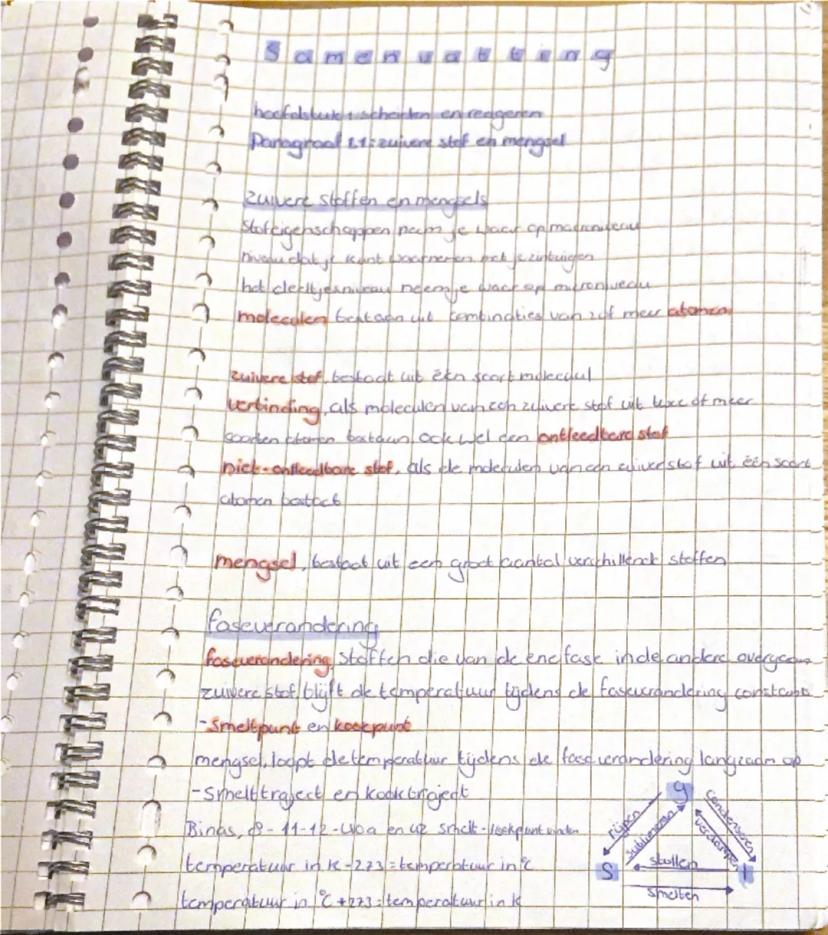 Samenvatting
hoofdstuk 1 scheiden en reageren
Paragraaf 1.1: zuivere stof en mengsel
Zuivere stoffen en mengsels
Stofeigenschappen neem je waar op macroniveau
niveau dat je kunt waarnemen met je zintuigen
het deeltjesniveau neem je waar op microniveau
moleculen bestaan uit combinaties van 2 of meer atomen
zuivere stof, bestaat uit één soort molecuul
verbinding, als moleculen van een zuivere stof uit twee of meer
soorten atomen bestaan, ook wel een ontleedbare stof
niet-ontleedbare stof, als de moleculen van een zuivere stof uit één soort
atomen bestaat
mengsel, bestaat uit een groot aantal verschillende stoffen
faseverandering
faseverandering stoffen die van de ene fase in de andere overgaan
zuivere stof, blijft de temperatuur tijdens de faseverandering constant
- Smeltpunt en kookpunt
mengsel, loopt de temperatuur tijdens de faseverandering langzaam op
- Smelttraject en kooktraject
Binas, 8 - 11 - 12 - 40a en 42 smelt - kookpunt
temperatuur in K - 273 = temperatuur in °C
temperatuur in °C + 273 = temperatuur in K
g
rijpen
sublimeren
condenseren
verdampen
s
stollen
l
smelten